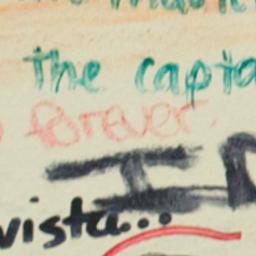 The capta
forever.
I
vista...